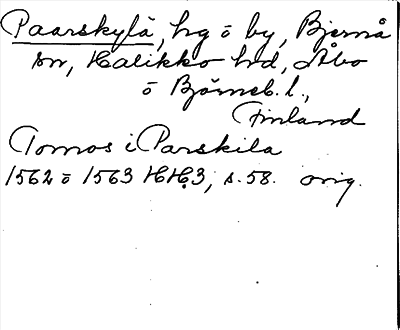 Paarskylä, hg ō by, Bjernå
sn, Halikko hd, Åbo
ō Björneb. l.,
Finland
Tomos i Parskila
1562 ō 1563 HH3, s. 58. orig.